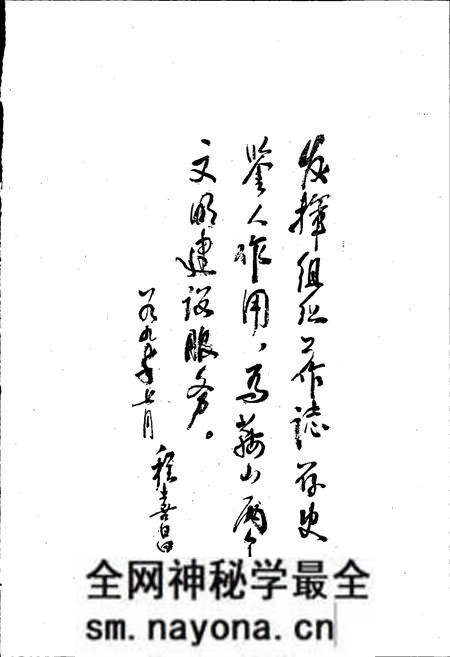 发揮组织工作誌存史
鉴人作用，为鞍山两个
文明建设服务。
一九九年七月
程喜昌
全网神秘学最全
sm.nayona.cn